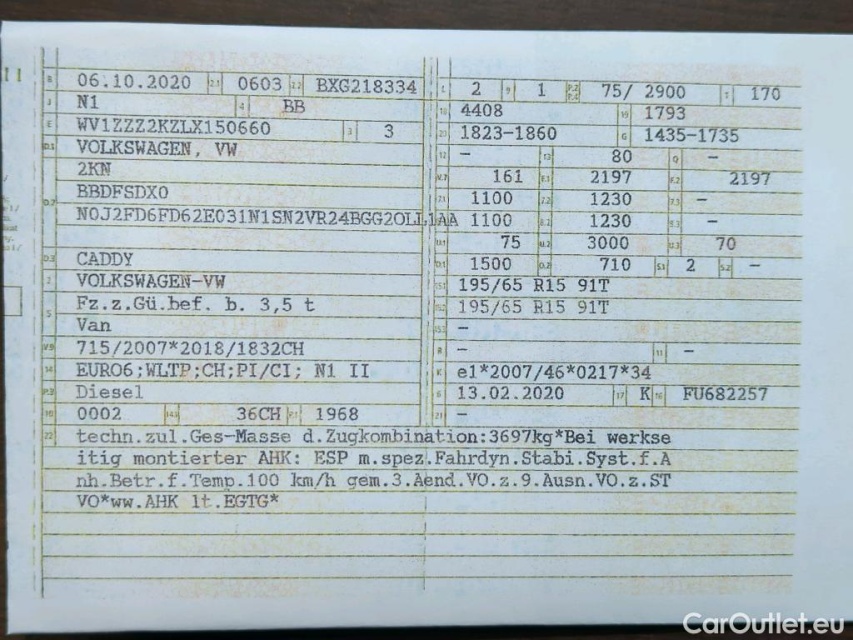 B 06.10.2020 2.1 0603 2.2 BXG218334
J N1 4 BB
E WV1ZZZ2KZLX150660 3 3
D.1 VOLKSWAGEN, VW
2KN
D.2 BBDFSDX0
N0J2FD6FD62E031N1SN2VR24BGG2OLL1AA
D.3 CADDY
2 VOLKSWAGEN-VW
5 Fz.z.Gü.bef. b. 3,5 t
Van
V.9 715/2007*2018/1832CH
14 EURO6;WLTP;CH;PI/CI; N1 II
P.3 Diesel
10 0002 14.1 36CH P.1 1968
L 2 9 1 P.2 P.4 75/ 2900 T 170
18 4408 19 1793
20 1823-1860 G 1435-1735
12 - 13 80 Q -
V.7 161 F.1 2197 F.2 2197
7.1 1100 7.2 1230 7.3 -
8.1 1100 8.2 1230 8.3 -
U.1 75 U.2 3000 U.3 70
O.1 1500 O.2 710 S.1 2 S.2 -
15.1 195/65 R15 91T
15.2 195/65 R15 91T
15.3 -
R - 11 -
K e1*2007/46*0217*34
6 13.02.2020 17 K 16 FU682257
21 -
22 techn.zul.Ges-Masse d.Zugkombination:3697kg*Bei werkse
itig montierter AHK: ESP m.spez.Fahrdyn.Stabi.Syst.f.A
nh.Betr.f.Temp.100 km/h gem.3.Aend.VO.z.9.Ausn.VO.z.ST
VO*ww.AHK lt.EGTG*
CarOutlet.eu